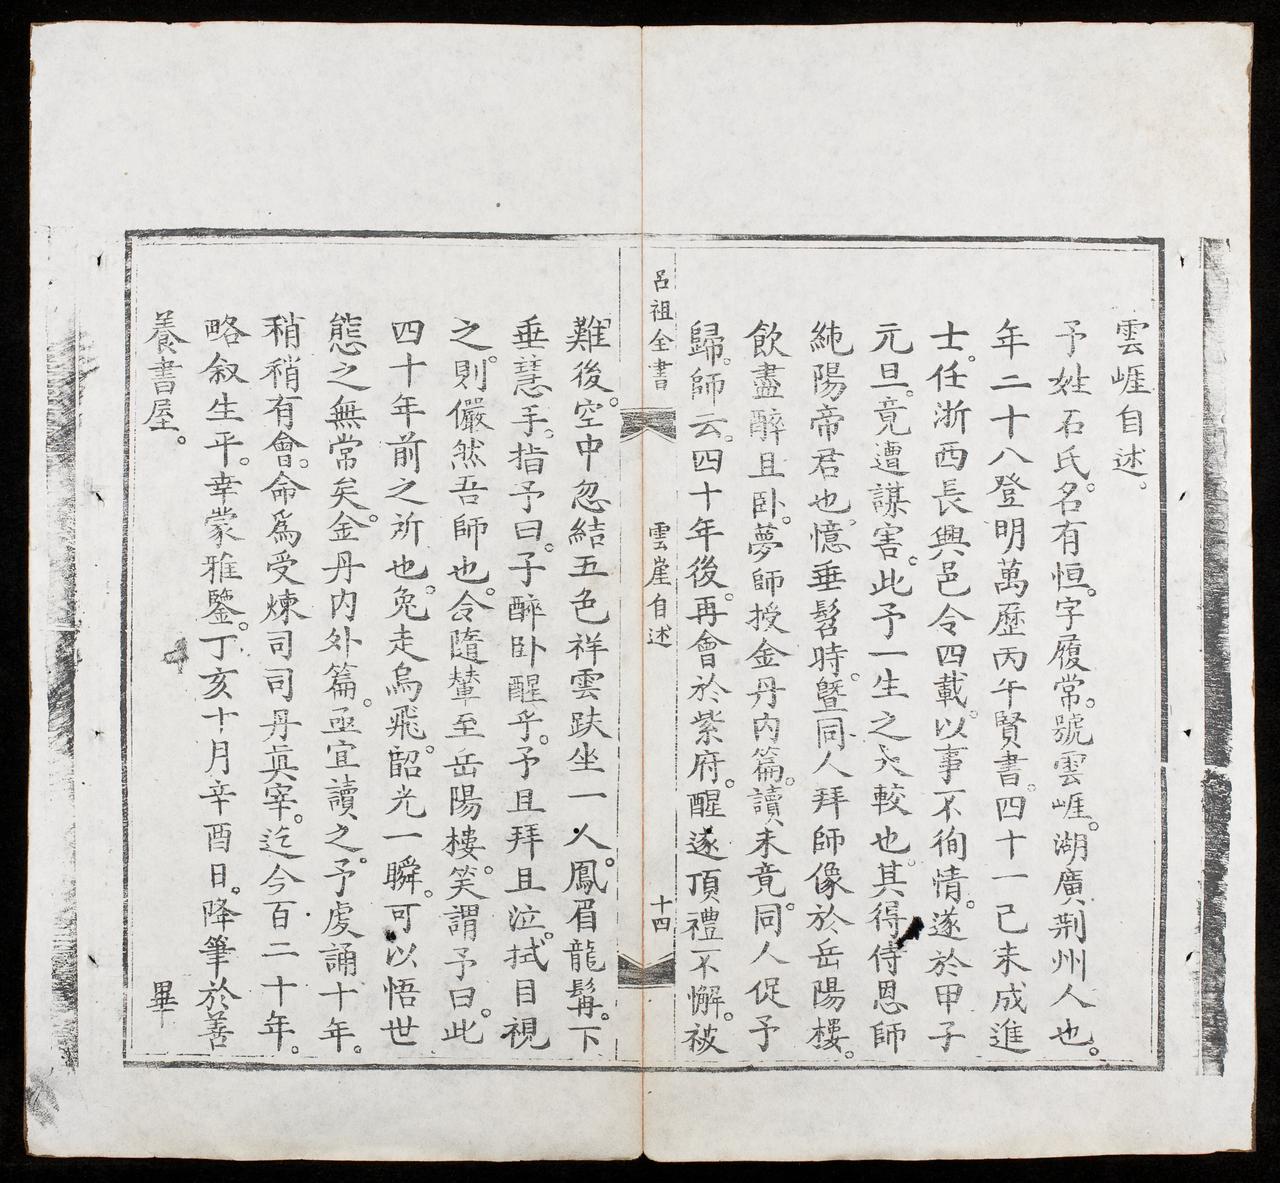 雲崕自述。
予姓石氏。名有恒。字履常。號雲崕。湖廣荆州人也。
年二十八登明萬歷丙午賢書。四十一己未成進
士。任浙西長興邑令四載。以事不徇情。遂於甲子
元旦。竟遭謀害。此予一生之大較也。其得侍恩師
純陽帝君也。憶垂髫時。曁同人拜師像於岳陽樓。
飲盡醉且卧。夢師授金丹内篇。讀未竟。同人促予
歸。師云。四十年後。再會於紫府。醒遂頂禮不懈。被
呂祖全書
雲崖自述
十四
難後。空中忽結五色祥雲趺坐一人。鳳眉龍髯。下
垂慧手。指予曰。子醉卧醒乎。予且拜且泣。拭目視
之。則儼然吾師也。令隨輦至岳陽樓。笑謂予曰。此
四十年前之所也。兔走烏飛。韶光一瞬。可以悟世
態之無常矣。金丹内外篇。亟宜讀之。予虔誦十年。
稍稍有會。命爲受煉司司丹真宰。迄今百二十年。
略叙生平。幸蒙雅鑒。丁亥十月辛酉日。降筆於善
養書屋。
畢